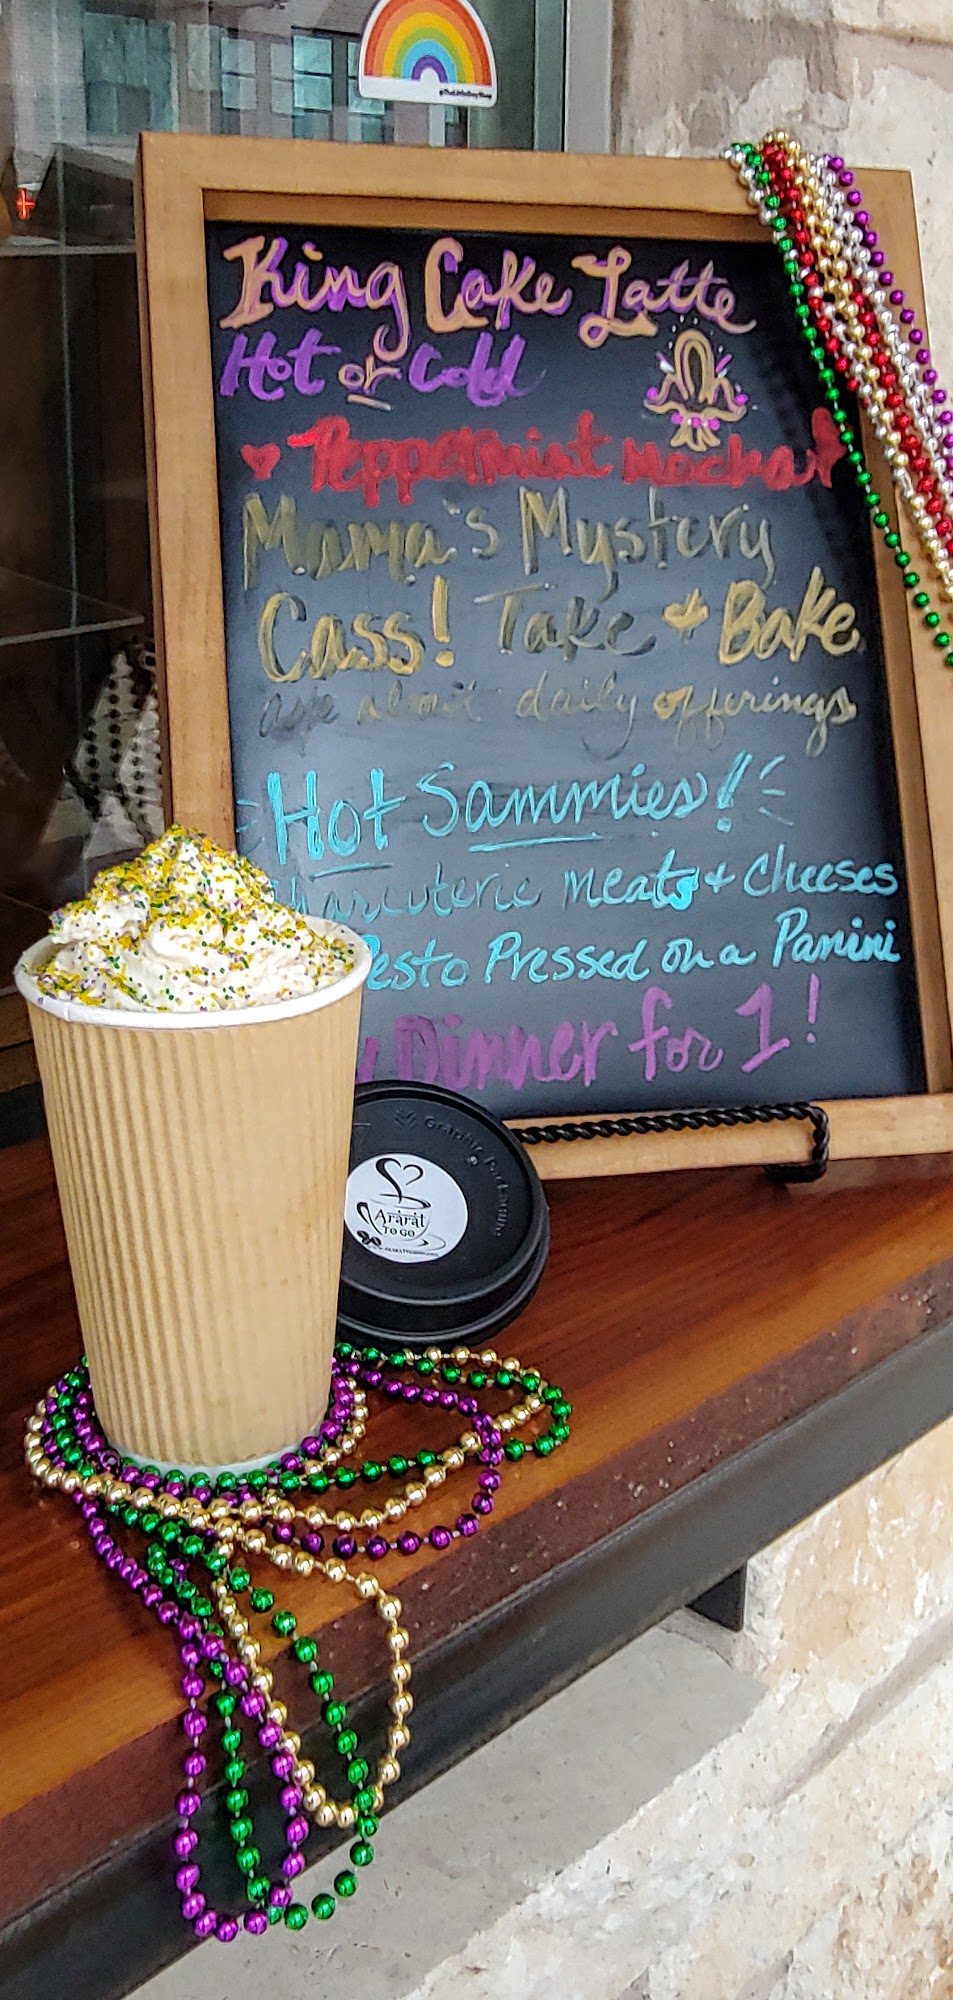 @TheLittleGayShop
King Cake Latte
Hot or Cold
Peppermint Mocha
Mama's Mystery
Cass! Take + Bake
ask about daily offerings
Hot Sammies!
Charcuterie meats + Cheeses
Pesto Pressed on a Panini
Dinner for 1!
Graphic Packaging
Ararat
TO GO